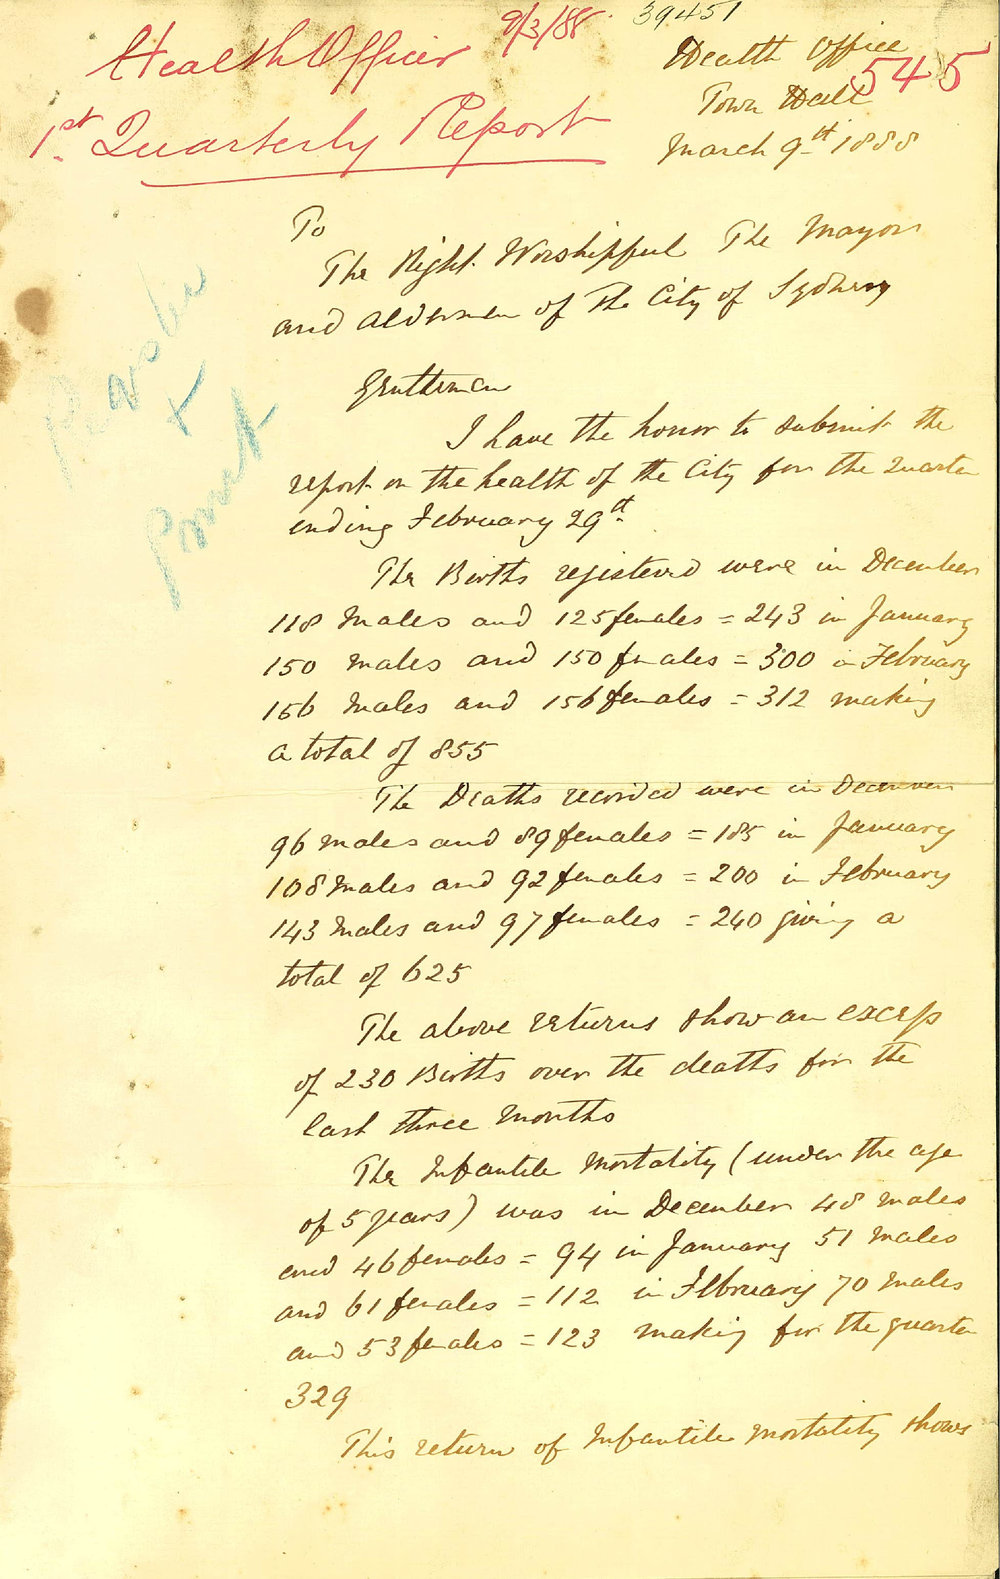 Health Officer 9/3/88. 39451
1st Quarterly Report
545
Health Office
Town Hall
March 9th 1888
To
The Right Worshipful The Mayor
and Aldermen of The City of Sydney
Gentlemen
I have the honor to submit the
report on the health of the City for the Quarter
ending February 29th.
The Births registered were in December
118 Males and 125 females = 243 in January
150 males and 150 females = 300 in February
156 Males and 156 females = 312 making
a total of 855
The Deaths recorded were in December
96 males and 89 females = 185 in January
108 Males and 92 females = 200 in February
143 Males and 97 females = 240 giving a
total of 625
The above returns show an excess
of 230 Births over the deaths for the
last three Months
The Infantile Mortality (under the age
of 5 years) was in December 48 males
and 46 females = 94 in January 51 Males
and 61 females = 112 in February 70 Males
and 53 females = 123 making for the quarter
329
This return of Infantile Mortality shows
Print